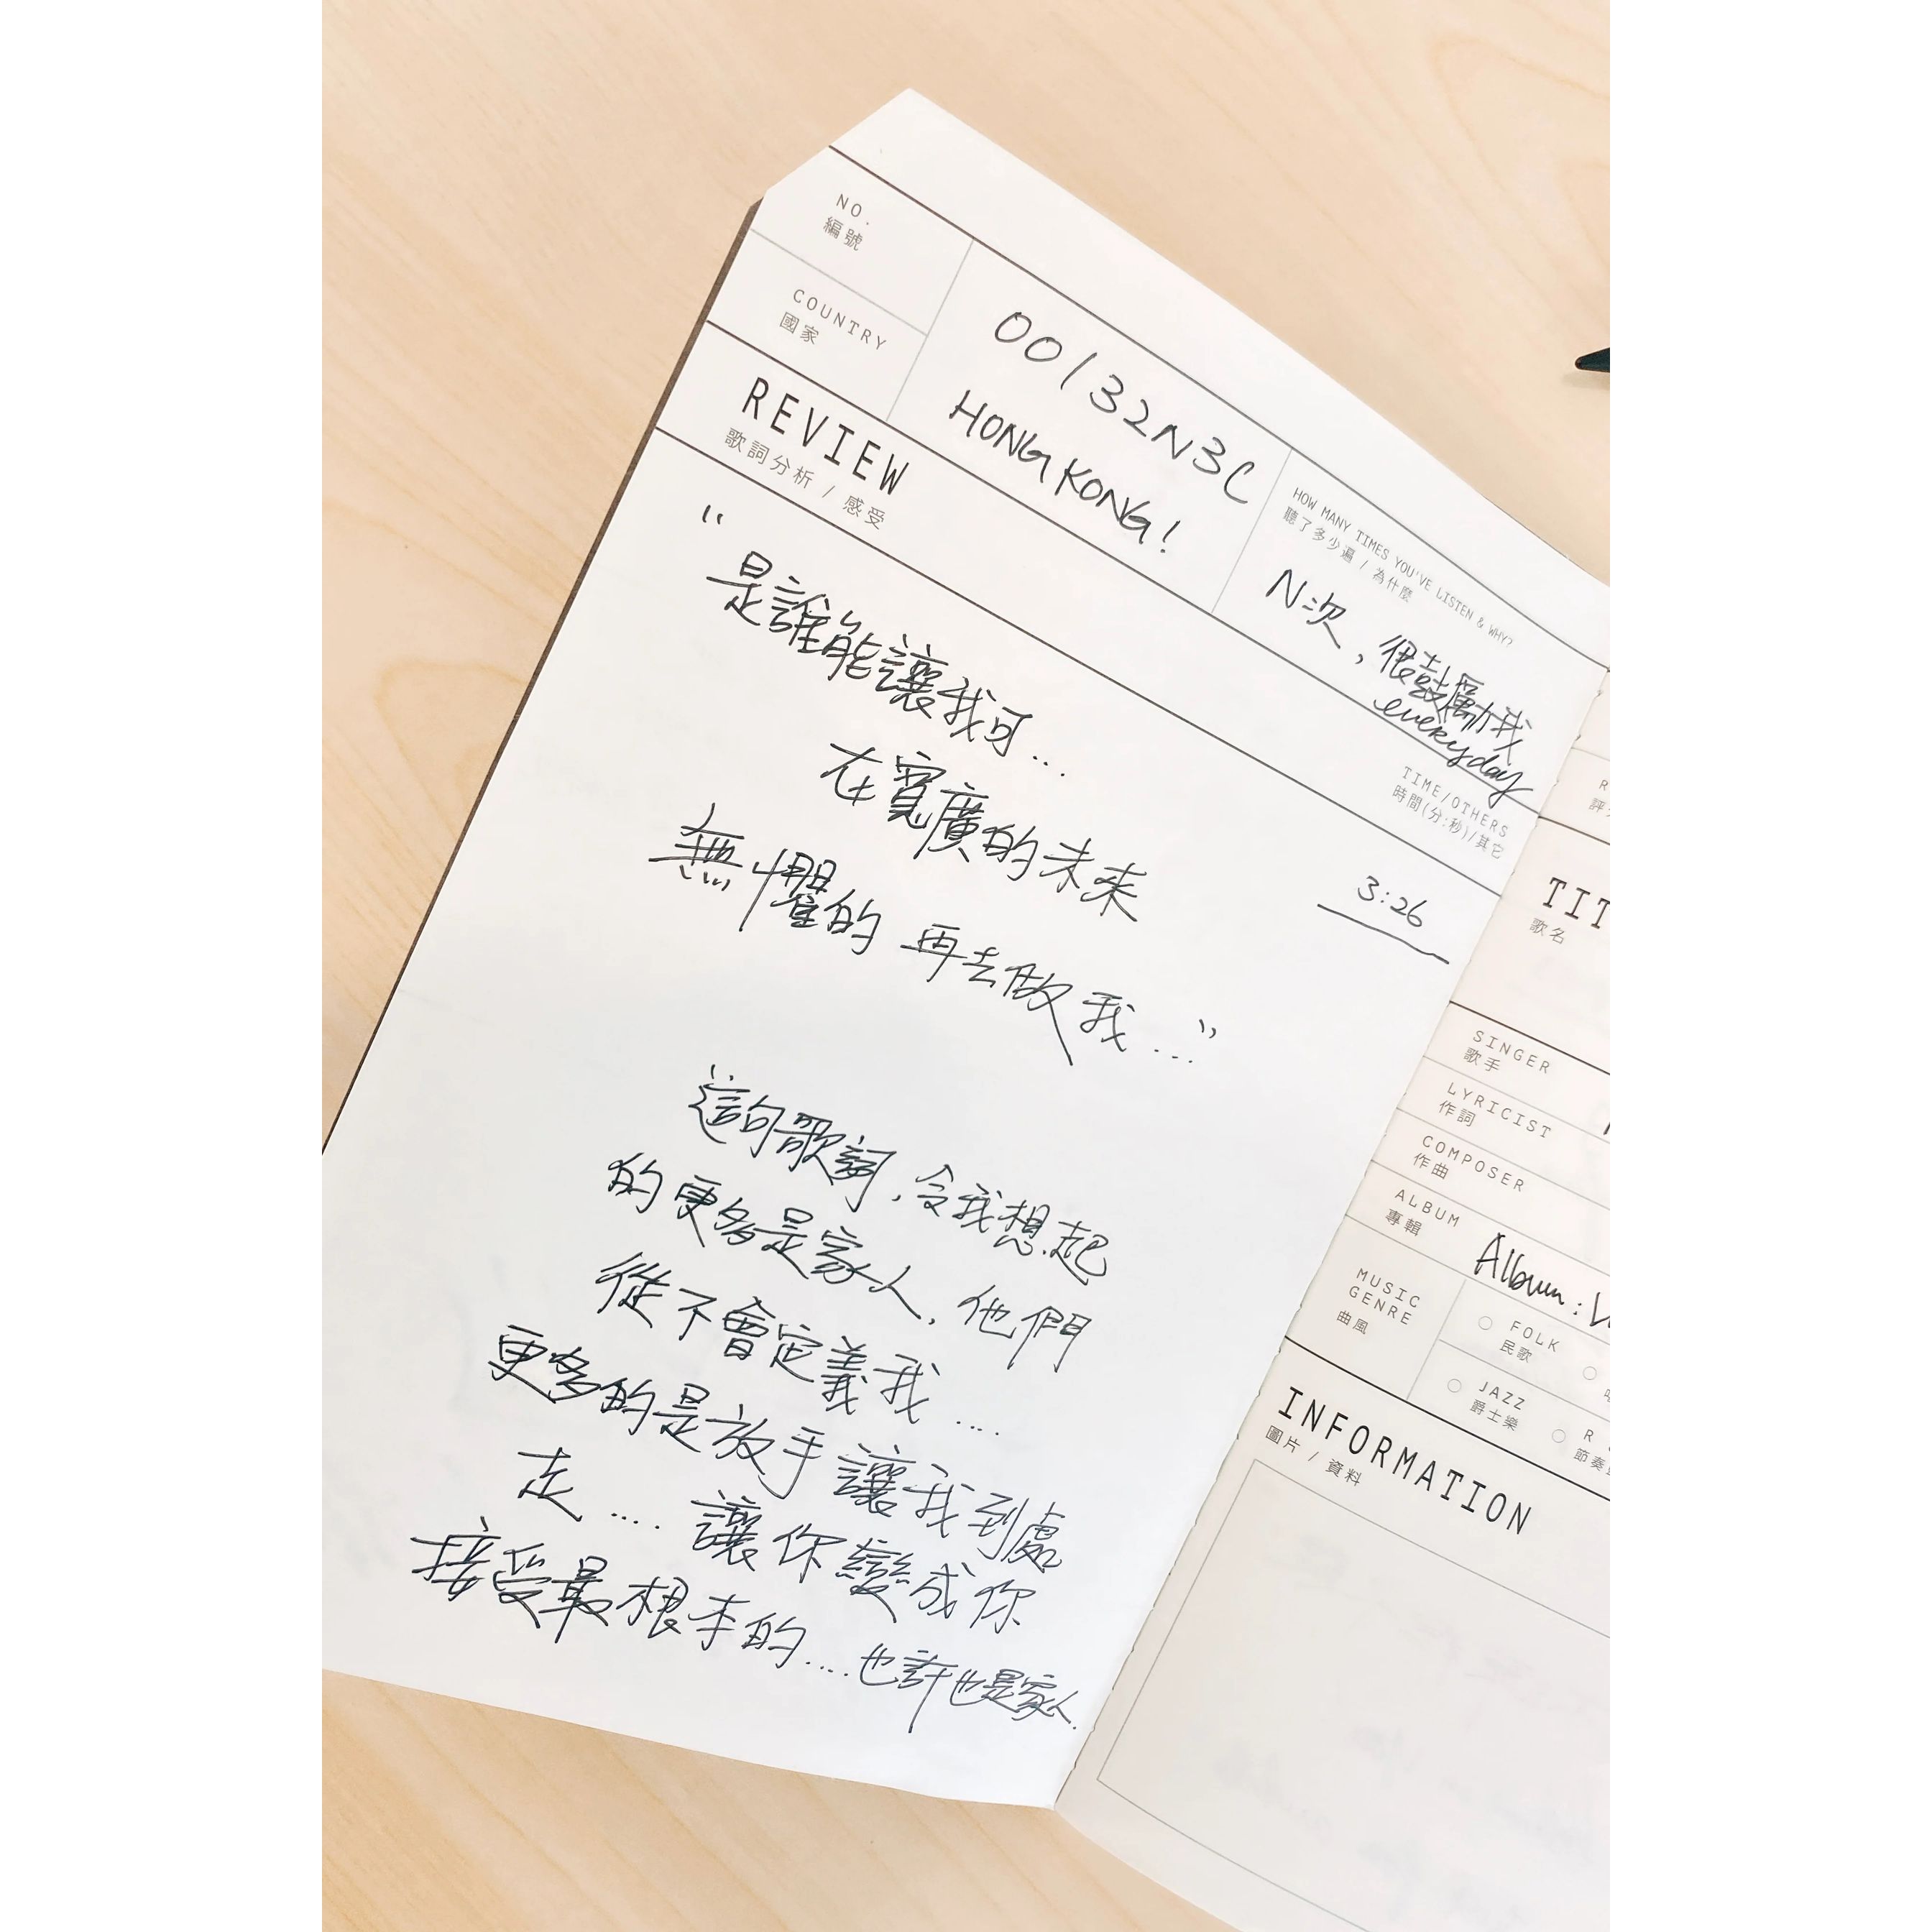 NO.
編號
00132N3C
COUNTRY
國家
HONG KONG!
HOW MANY TIMES YOU'VE LISTEN & WHY?
聽了多少遍 / 為什麼
N次，很鼓勵我
everyday
REVIEW
歌詞分析 / 感受
TIME/OTHERS
時間(分:秒)/其它
3:26
“
是誰能讓我可...
在寬廣的未來
無懼的 再去做我...”
這句歌詞，令我想起
的更多是家人，他們
從不會定義我....
更多的是放手讓我到處
走.... 讓你變成你
接受最根本的....也許也是家人.
R
評
TIT
歌名
SINGER
歌手
LYRICIST
作詞
COMPOSER
作曲
ALBUM
專輯
Album:
MUSIC
GENRE
曲風
FOLK
民歌
JAZZ
爵士樂
R
節奏
INFORMATION
圖片 / 資料